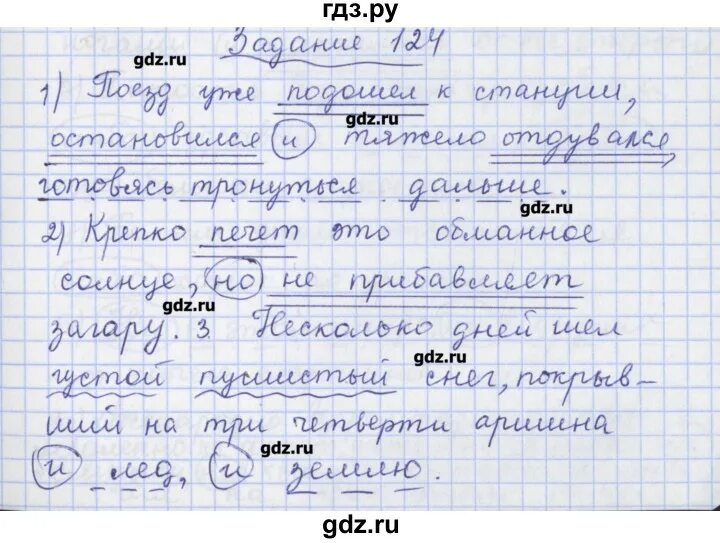 гдз.ру
Задание 124
gdz.ru
1) Поезд уже подошел к станции,
gdz.ru
остановился и тяжело отдувался,
готовясь тронуться дальше.
gdz.ru
2) Крепко печет это обманное
солнце, но не прибавляет
gdz.ru
загару. 3 Несколько дней шел
gdz.ru
густой пушистый снег, покрыв-
ший на три четверти аршина
gdz.ru
и лед, и землю.
gdz.ru